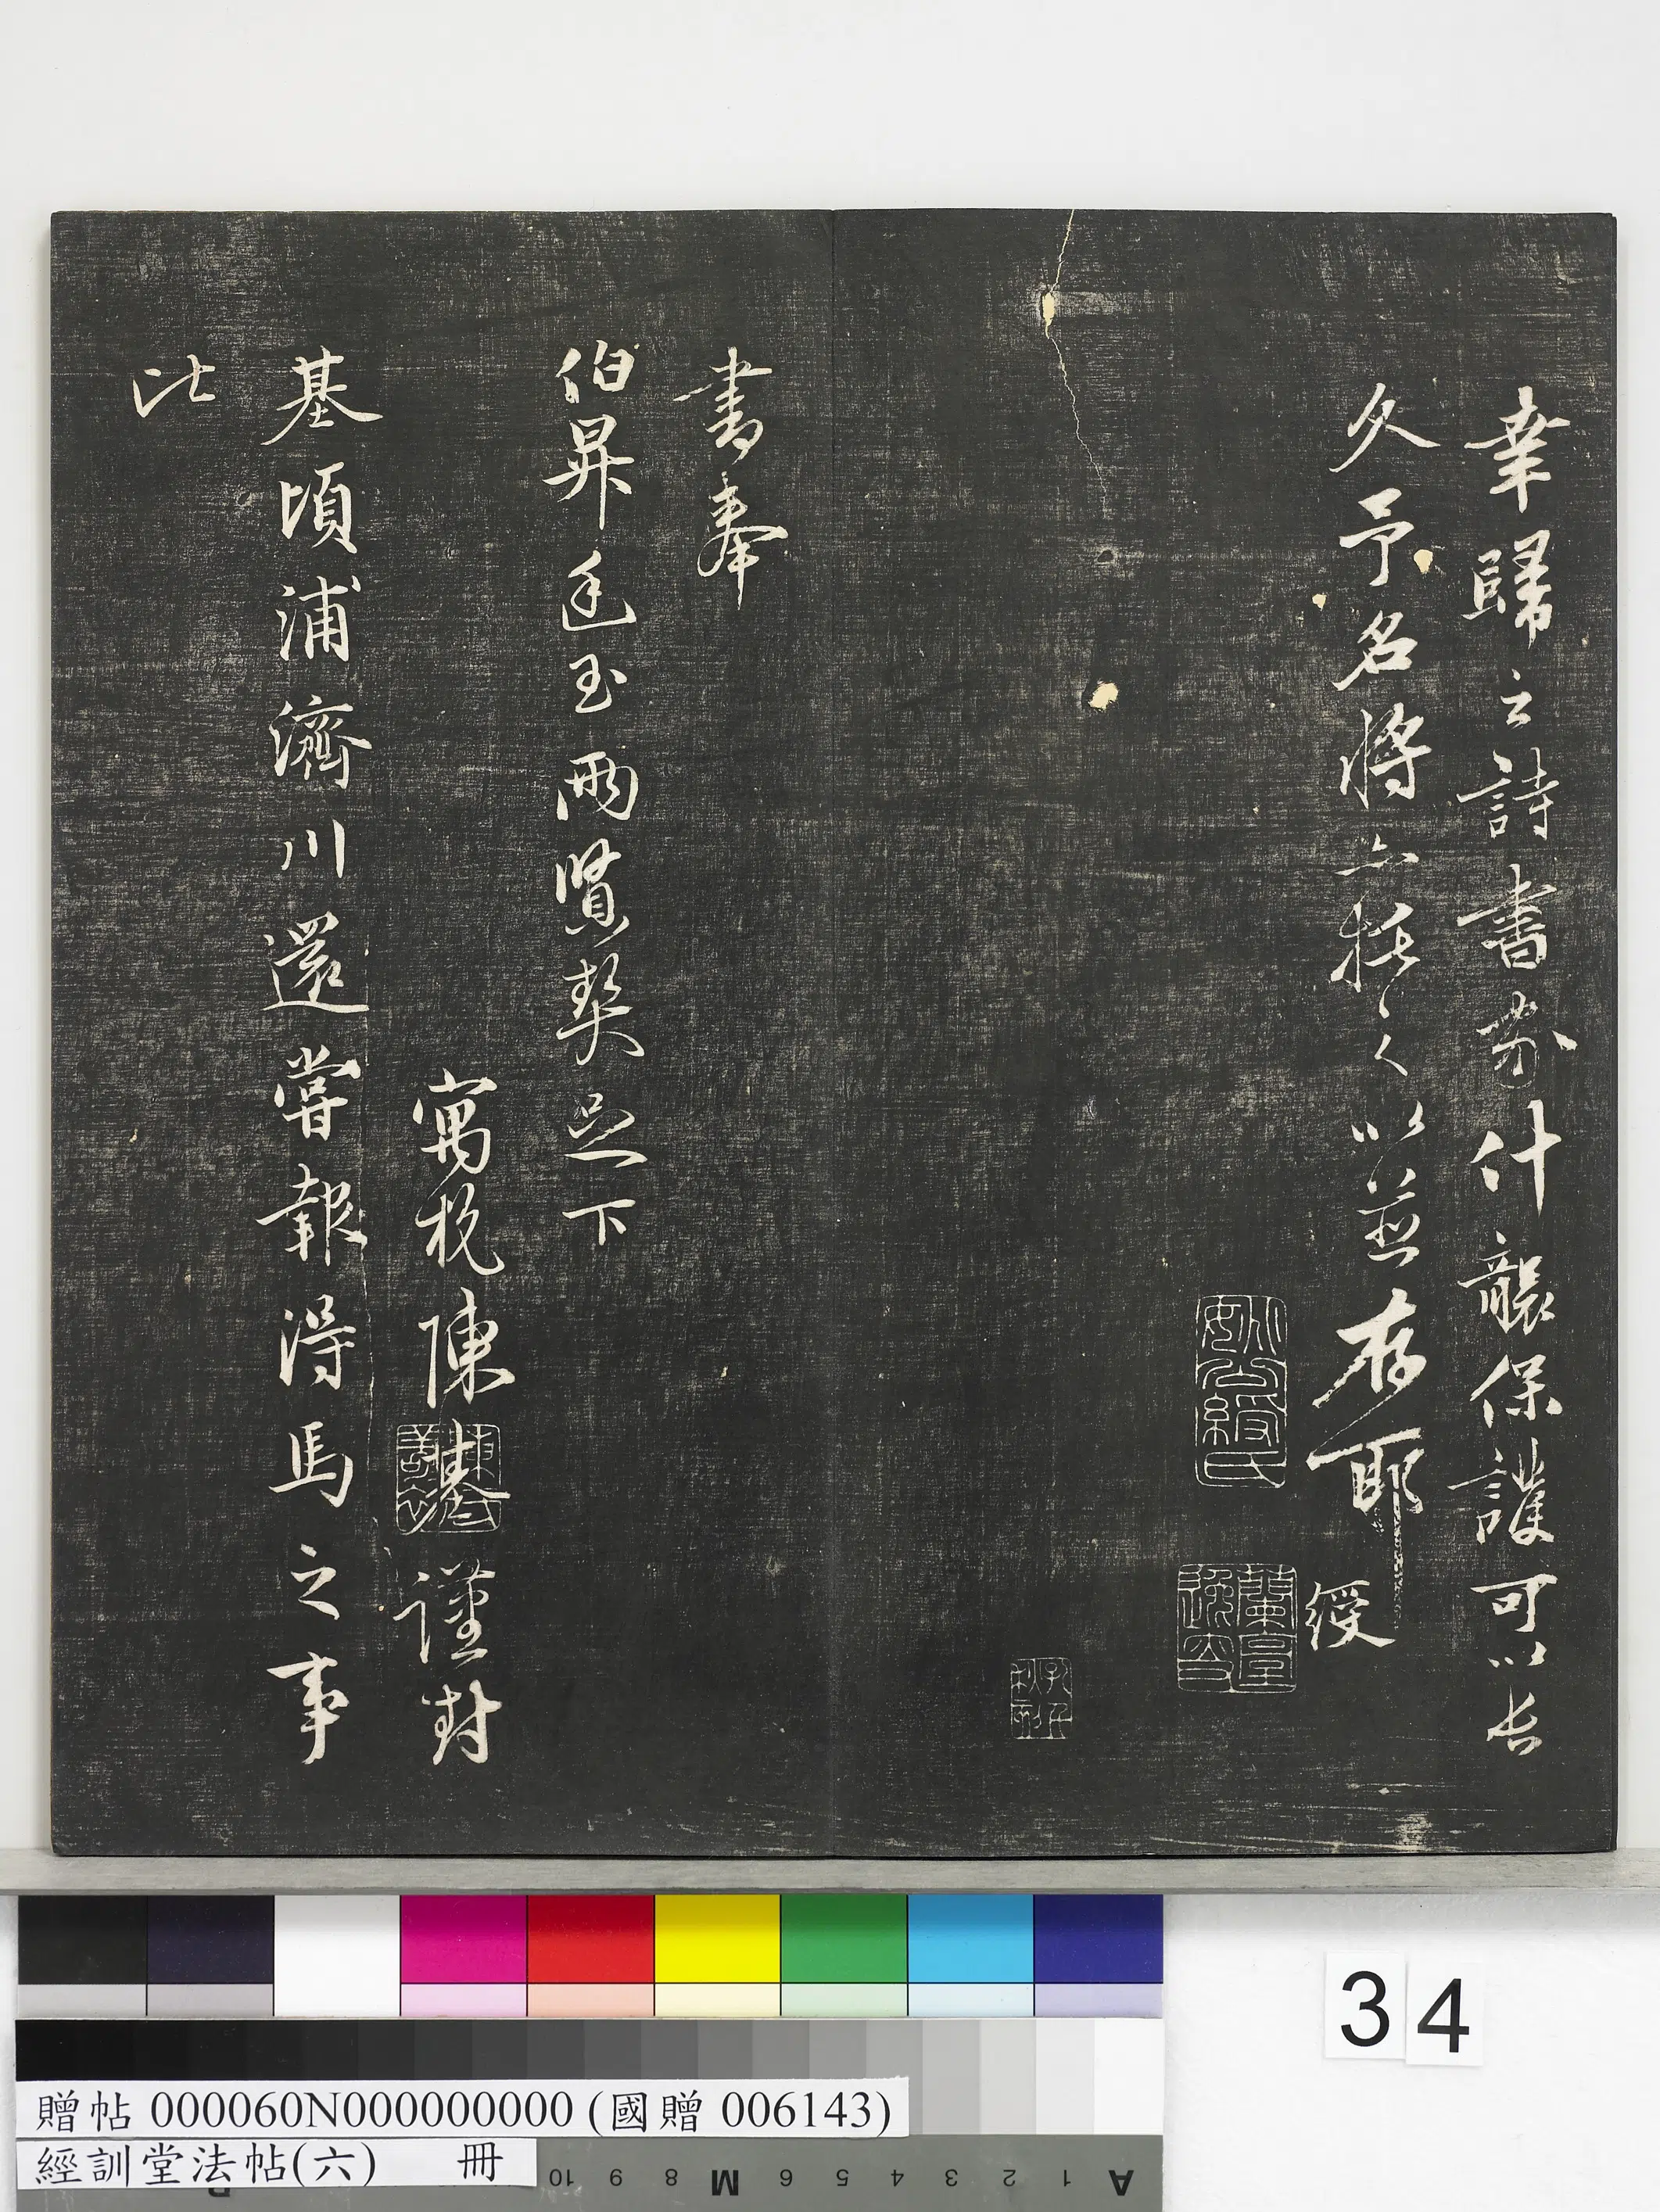 幸歸之詩書劵什襲保護可以長
久予名將亦托之以並存耶
綬
書奉
伯昇廷玉兩賢契足下
寓杭陳基謹封
基頃浦濟川還嘗報得馬之事
比
34
贈帖 000060N000000000 (國贈 006143)
經訓堂法帖(六) 冊
10 9 8 M 6 5 4 3 2 1 A